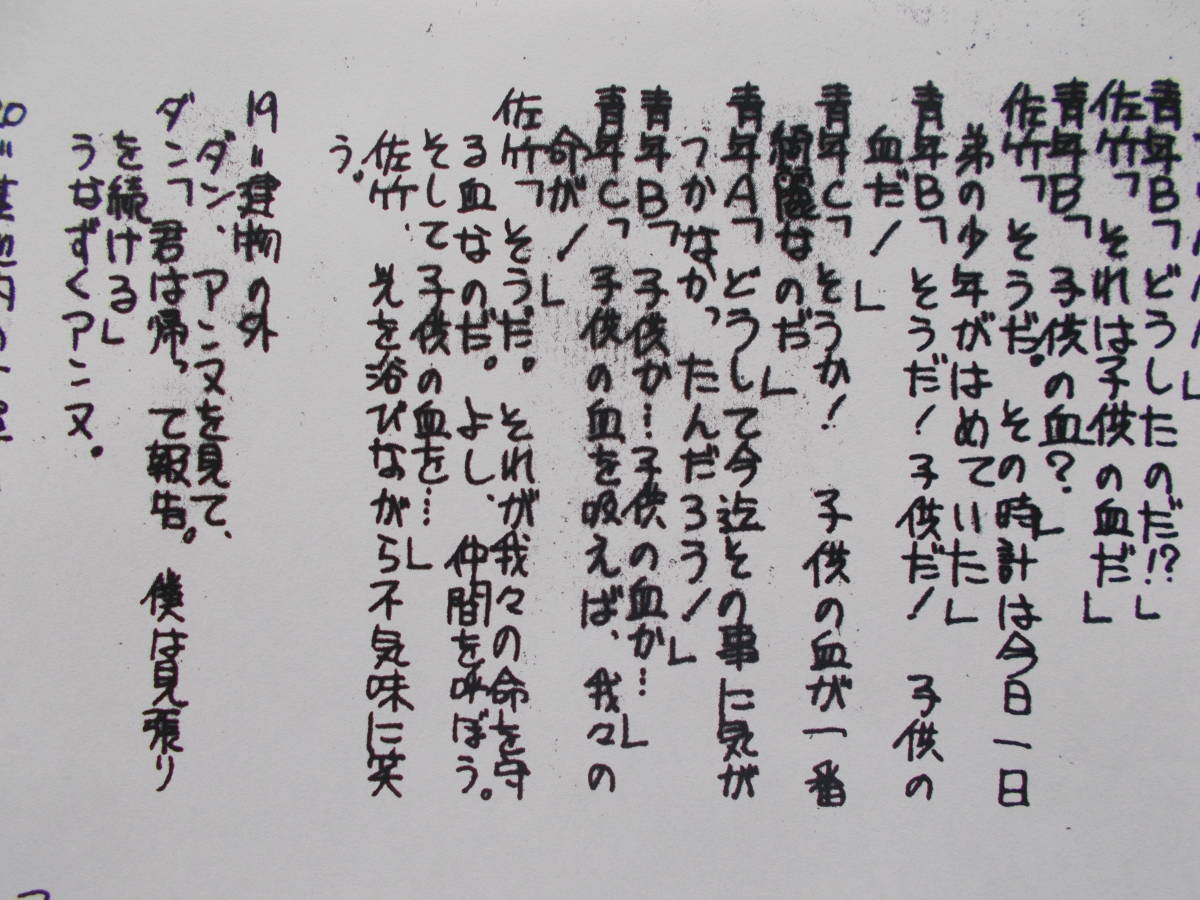 青年B「どうしたのだ!?」
佐竹「それは子供の血だ」
青年B「子供の血?」
佐竹「そうだ。その時計は今日一日
弟の少年がはめていた」
青年B「そうだ!子供だ!子供の
血だ!」
青年C「そうか!子供の血が一番
綺麗なのだ」
青年A「どうして今迄その事に気が
つかなかったんだろう!」
青年B「子供か…子供の血か…」
青年C「子供の血を吸えば、我々の
命が!」
佐竹「そうだ。それが我々の命を守
る血なのだ。よし、仲間を呼ぼう。
そして子供の血を…」
佐竹、光を浴びながら不気味に笑
う。
19=建物の外
ダン、アンヌを見て、
ダン「君は帰って報告。僕は見張り
を続ける」
うなずくアンヌ。
20